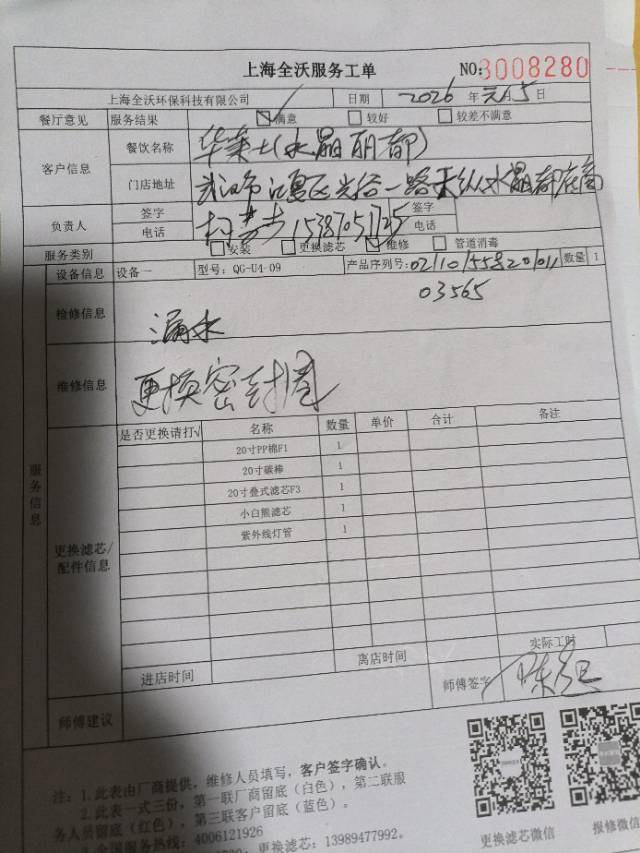 上海全沃服务工单 NO:3008280
上海全沃环保科技有限公司 日期 2026年元月5日
餐厅意见 服务结果 ☑满意 □较好 □较差不满意
客户信息 餐饮名称 华莱士(水晶丽都)
门店地址 武汉市江夏区光谷一路 水晶 都底商
负责人 签字 签字
电话 15387051725 电话
服务类别 □安装 □更换滤芯 ☑维修 □管道消毒
设备信息 设备一 型号: QG-U4-09 产品序列号: 数量 1
03565
检修信息 漏水
维修信息 更换密封圈
服务信息
更换滤芯/配件信息
是否更换请打√ 名称 数量 单价 合计 备注
20寸PP棉F1 1
20寸碳棒 1
20寸叠式滤芯F3 1
小白熊滤芯 1
紫外线灯管 1
实际工时
进店时间 离店时间
师傅签字 陈
师傅建议
注: 1.此表由厂商提供,维修人员填写,客户签字确认。
2.此表一式三份,第一联厂商留底(白色),第二联服
务人员留底(红色),第三联客户留底(蓝色)。
3.全国服务热线: 4006121926
更换滤芯: 13989477992.
更换滤芯微信 报修微信